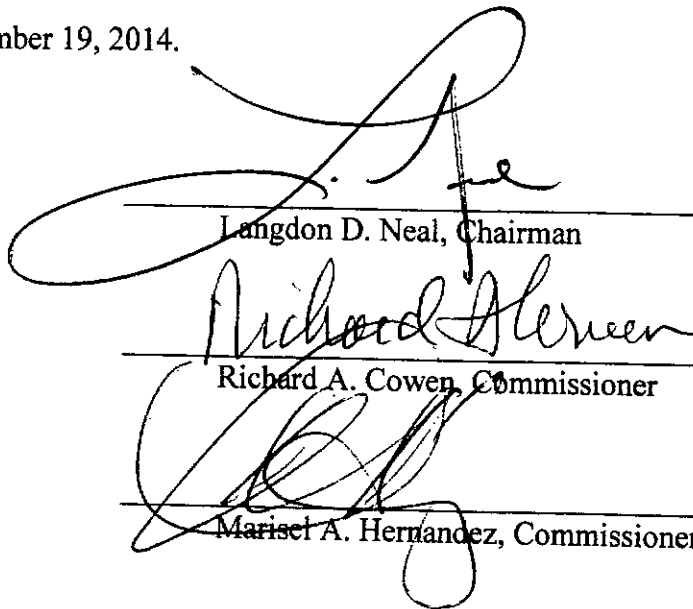 mber 19, 2014.
Langdon D. Neal, Chairman
Richard A Cowen
Richard A. Cowen, Commissioner
Marisel A. Hernandez, Commissioner